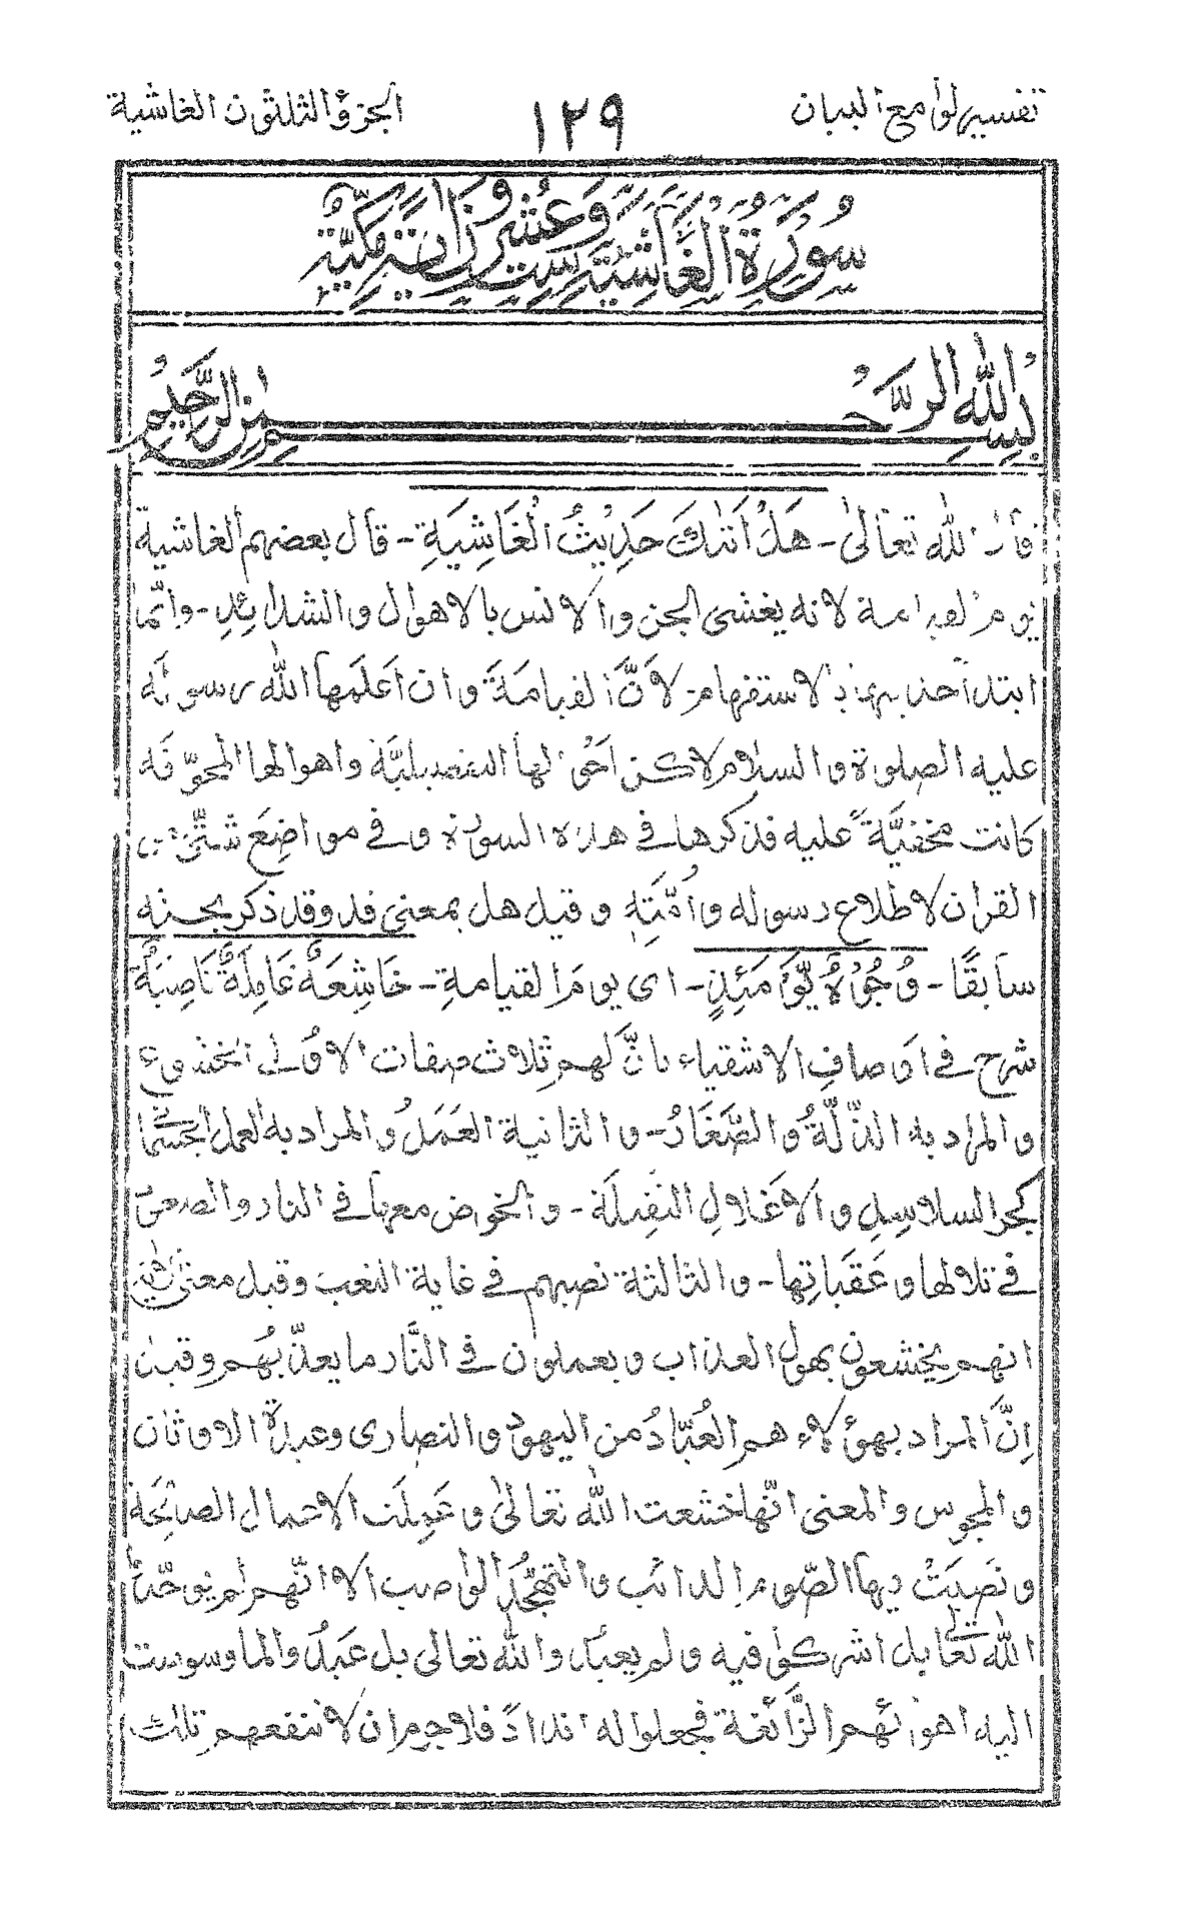 تفسير لوامع البيان ١٢٩ الجزء الثلثون الغاشية
سُورَةُ الْغَاشِيَةِ سِتٌّ وَعِشْرُونَ اٰيَةً مَكِّيَّةٌ
بِسْمِ اللّٰهِ الرَّحْمٰنِ الرَّحِيْمِ
قال اللّٰه تعالىٰ - هَلْ اَتٰىكَ حَدِيْثُ الْغَاشِيَةِ - قال بعضهم الغاشية
يوم القيامة لانه يغشى الجن والانس بالاهوال والشدائد - وانّما
ابتدأ بالاستفهام - لانَّ القيامةَ وان اَعلَمها اللّٰه رسوله
عليه الصلوة والسلام لاكن واهوالها المخوّفة
كانت مخفيَّة عليه فذكرها فى هذه السورة وفى مواضع شتّٰى من
القران لاطلاع رسوله واُمَّتِهٖ وقيل هل بمعنى قد وقد ذكر بحثه
سابقًا - وُجُوْهٌ يَّوْمَئِذٍ - اى يومَ القيامةِ - خَاشِعَةٌ عَامِلَةٌ نَاصِبَةٌ
شرح فى اَوصافِ الاشقياء بانَّ لهم ثلاث صفات الاولى الخشوع
والمراد به الذّلّةُ والصَّغَارُ - والثانية العَمَلُ والمراد به العمل الجسمانى
كجر السلاسِلِ والاَغلالِ الثقيلَة - والخوض معها فى النار والصعود
فى تلالها وعَقَباتِها - والثالثة نصبهم فى غاية التعب وقيل معنى
انهم يخشعون بهول العذاب ويعملون فى النَّار ما يعذّبهُم وقيل
اِنَّ المراد بهؤلاء هم العُبَّادُ من اليهود والنصارى وعبدة الاوثان
والمجوس والمعنى انّها خشعت اللّٰه تعالىٰ وعَمِلَت الاعمال الصالحة
ونَصِبَتْ بها الصّوم الدائب والتهجّد الواصب الا انّهم لم يوحّدوا
اللّٰه تعالىٰ بل اشركوا فيه ولم يعبدوا اللّٰه تعالى بل عَبَدُوا لما وسوست
اليه اهوائهم الزَّائغة فجعلوا له اندادًا فلا جرم ان لا تنفعهم تلك